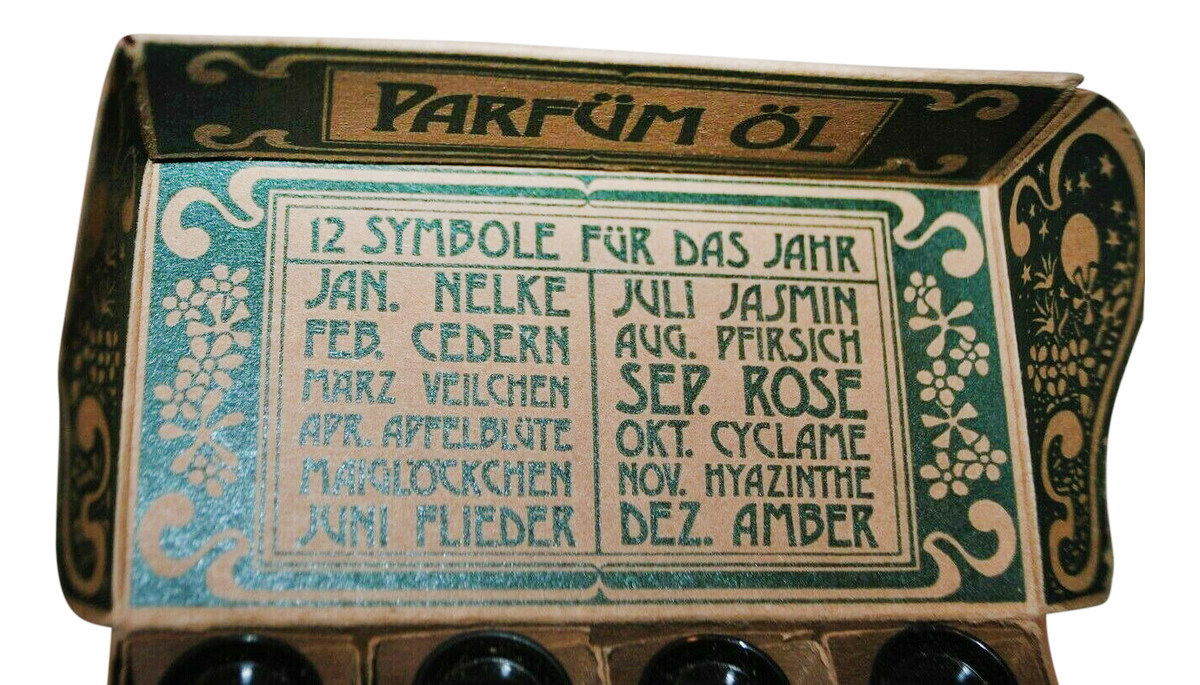 PARFÜM ÖL
12 SYMBOLE FÜR DAS JAHR
JAN. NELKE
FEB. CEDERN
MÄRZ VEILCHEN
APR. APFELBLÜTE
MAIGLÖCKCHEN
JUNI FLIEDER
JULI JASMIN
AUG. PFIRSICH
SEP. ROSE
OKT. CYCLAME
NOV. HYAZINTHE
DEZ. AMBER